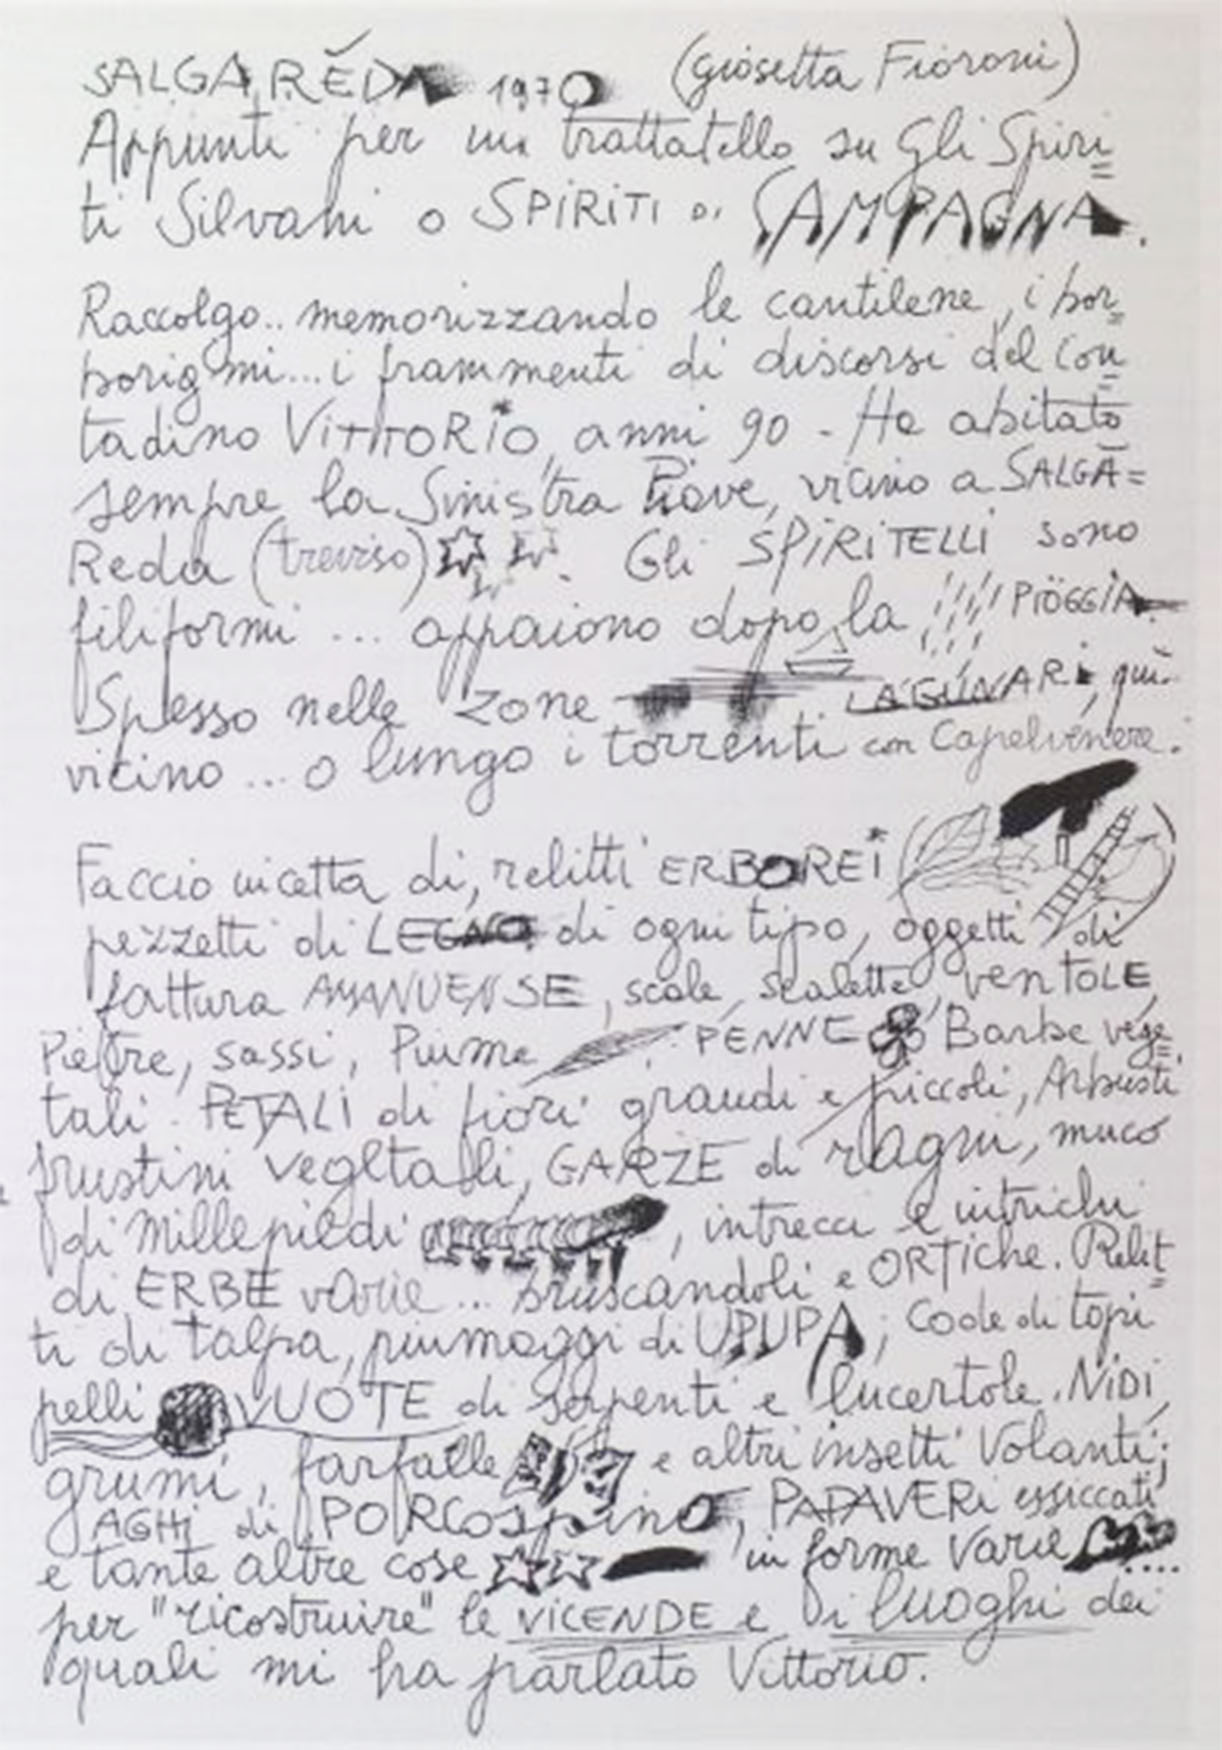 SALGARĔDA 1970 (giosetta Fioroni)
Appunti per un trattatello su Gli Spiri=
ti Silvani o SPIRITI DI CAMPAGNA.
Raccolgo.. memorizzando le cantilene, i bor=
borigmi... i frammenti di discorsi del con=
tadino VITTORIO, anni 90 - Ha abitato
sempre la Sinistra Piave, vicino a SALGA=
Reda (treviso). Gli SPIRITELLI sono
filiformi ... appaiono dopo la PIOGGIA
Spesso nelle zone LAGUNARI, qui
vicino ... o lungo i torrenti con Capelvenere.
Faccio incetta di, relitti ERBOREI
pezzetti di LEGNO di ogni tipo, oggetti di
fattura AMANUENSE, scale, scalette, VENTOLE,
Pietre, sassi, Piume PENNE Barbe vege=
tali. PETALI di fiori grandi e piccoli, Arbusti
frustini vegetali, GARZE di ragni, muco
di Millepiedi, intrecci e intrichi
di ERBE varie ... bruscandoli e ORTICHE. Relit=
ti di talpa, piumaggi di UPUPA, Code di topi
pelli VUOTE di serpenti e lucertole. NIDI,
grumi, farfalle e altri insetti Volanti;
AGHI di PORCOspino, PAPAVERI essiccati
e tante altre cose in forme Varie ....
per "ricostruire" le VICENDE e i luoghi dei
quali mi ha parlato Vittorio.